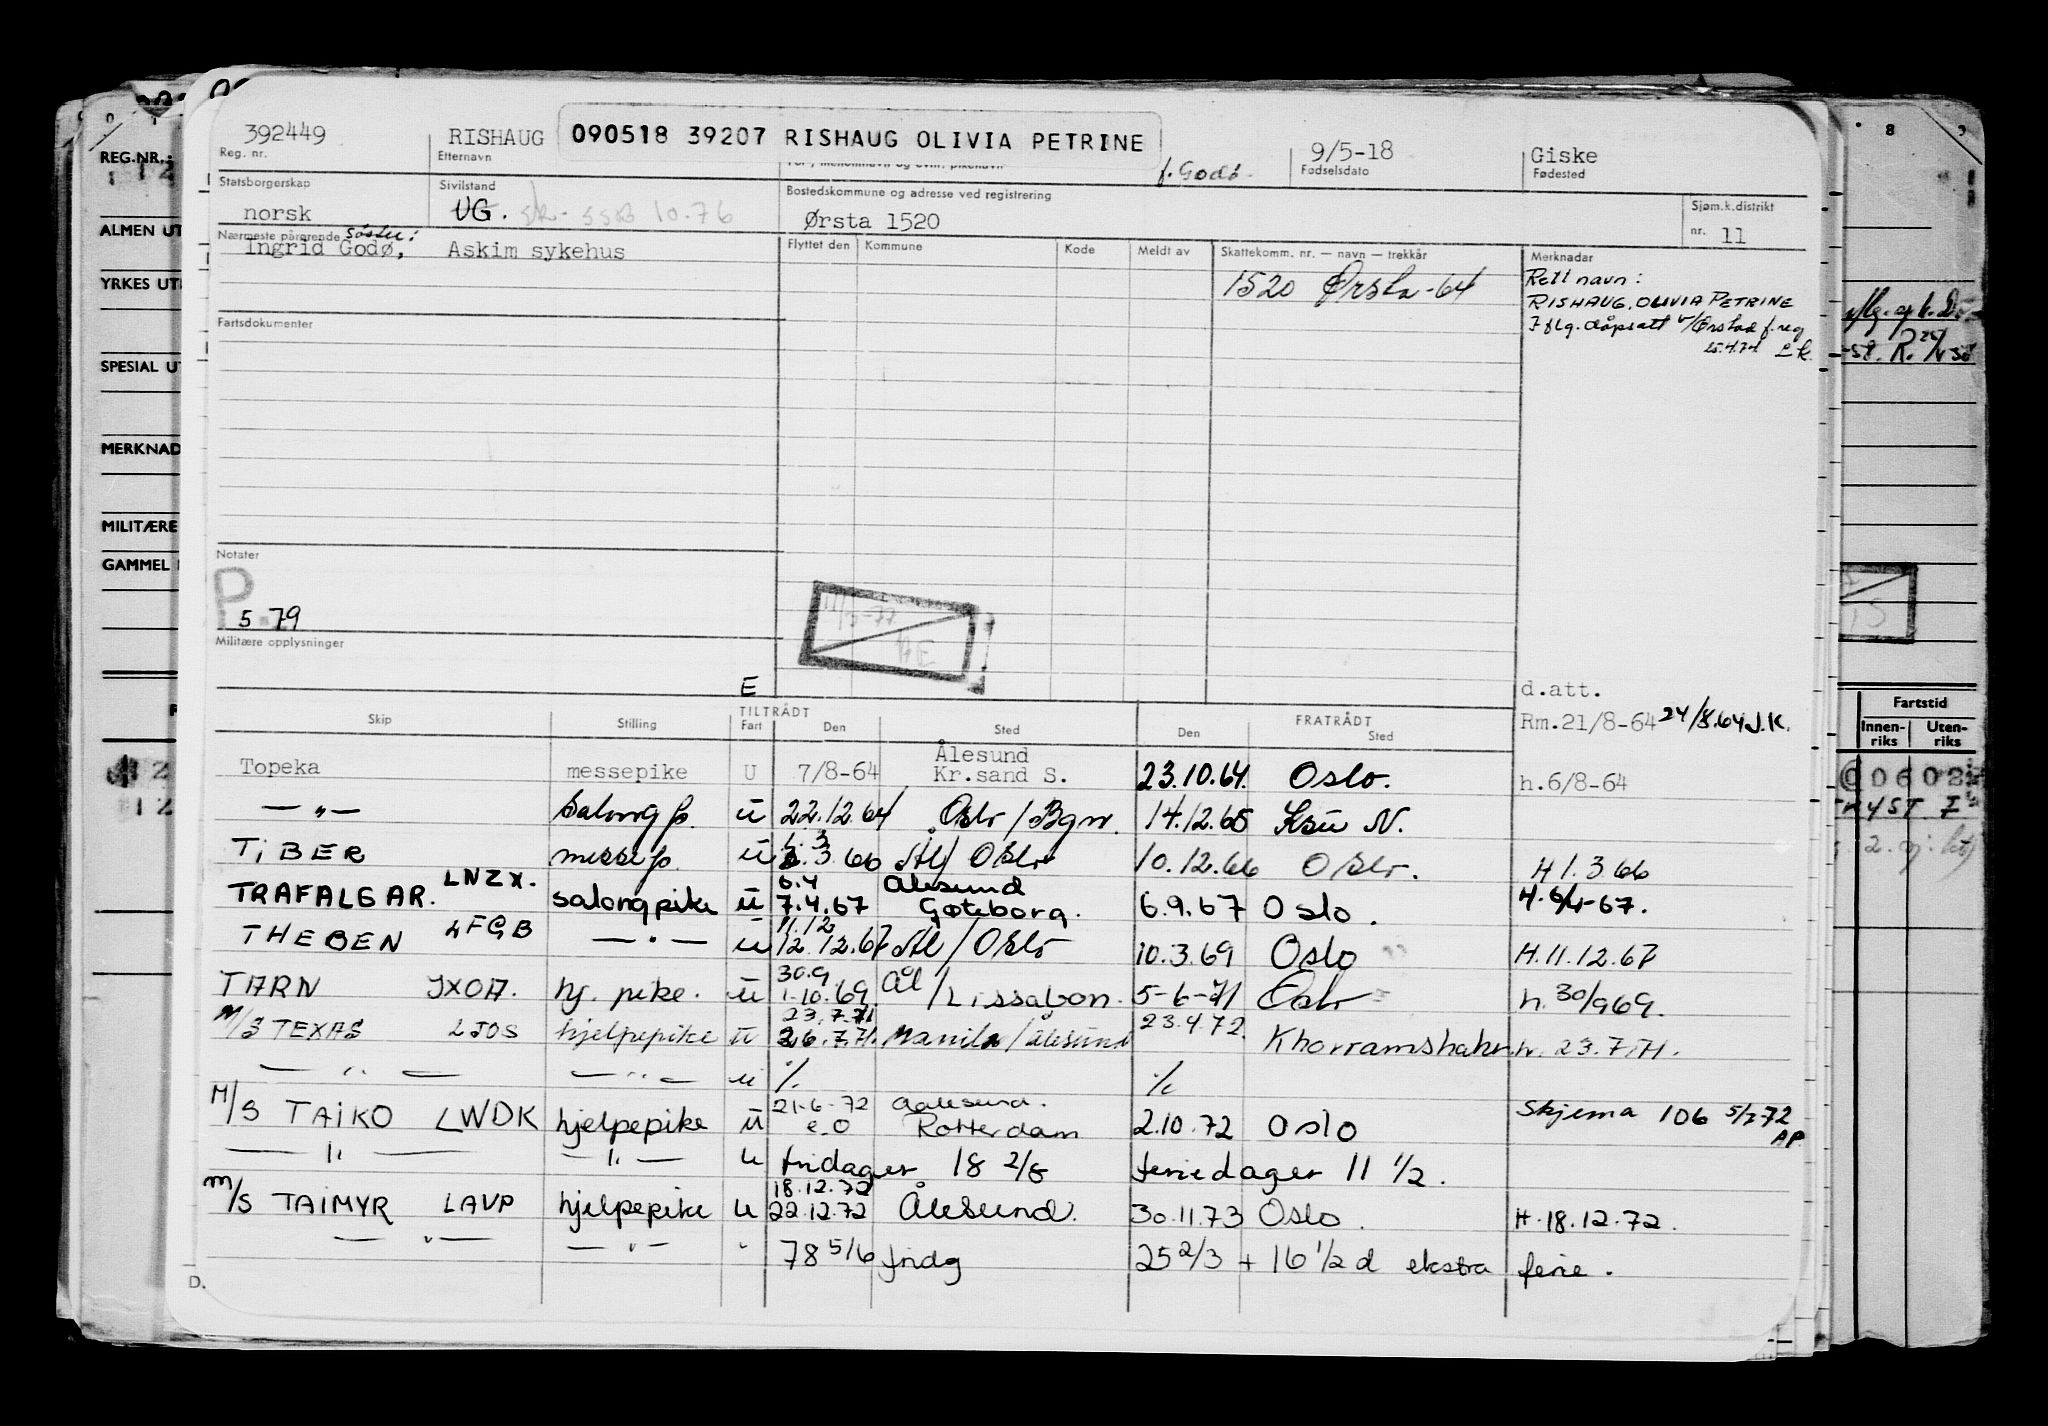 392449 RISHAUG 090518 39207 RISHAUG OLIVIA PETRINE f. Godø. 9/5-18 Giske
Reg. nr. Etternavn Fødselsdato Fødested
Statsborgerskap Sivilstand Bostedskommune og adresse ved registrering Sjøm.k.distrikt
norsk UG. 10.76 Ørsta 1520 nr. 11
Nærmeste pårørende søster: Flyttet den Kommune Kode Meldt av Skattekomm. nr. — navn — trekkår Merknadar
Ingrid Godø, Askim sykehus 1520 Ørsta-64
Rett navn:
RISHAUG, OLIVIA PETRINE
I flg. dåpsatt
25.4.74
Fartsdokumenter
Notater
P
5.79
Militære opplysninger
E
d.att.
Rm.21/8-64 24/8.64 J.K.
Skip Stilling TILTRÅDT Fart Den Sted FRATRÅDT Den Sted
Topeka messepike U 7/8-64 Ålesund Kr.sand S. 23.10.64. Oslo. h.6/8-64
— " — Salong p. u 22.12.64 Oslo / Bgn. 14.12.65 Ksu N.
TiBER messep. u 3.66 Ål/Oslo 10.12.66 Oslo. H 1.3.66
TRAFALGAR. LNZX. salongpike u 6.4 7.4.67 Ålesund Gøteborg. 6.9.67 Oslo. H.6/4-67.
THEBEN LFGB — " — u 11.12 12.12.67 Ål/Oslo 10.3.69 Oslo H.11.12.67
TARN JXOA. hj. pike. u 30.9 1.10.69. Ål/Lissabon. 5-6-71 Oslo h.30/969.
M/S TEXAS LJOS hjelpepike u 23.7.71 26.7.71. Manila/Ålesund 23.4.72. Khorramshahr h. 23.7.71.
— " — — " — u % %
M/S TAIKO LWDK hjelpepike u 21-6-72 e.o Aalesund. Rotterdam 2.10.72 Oslo Skjema 106 5/7 72 AP.
— " — — " — u fridager 18 2/6 feriedager 11 1/2.
M/S TAIMYR LAVP hjelpepike u 18.12.72 22.12.72 Ålesund. 30.11.73 Oslo. H.18.12.72.
— " — — " — " 78 5/6 fridg 25 2/3 + 16 1/2 d ekstra ferie.
D.
REG.NR.
ALMEN UT
YRKES UT
SPESIAL UT
MERKNAD
MILITÆRE
GAMMEL
Fartstid
Innen-riks Uten-riks